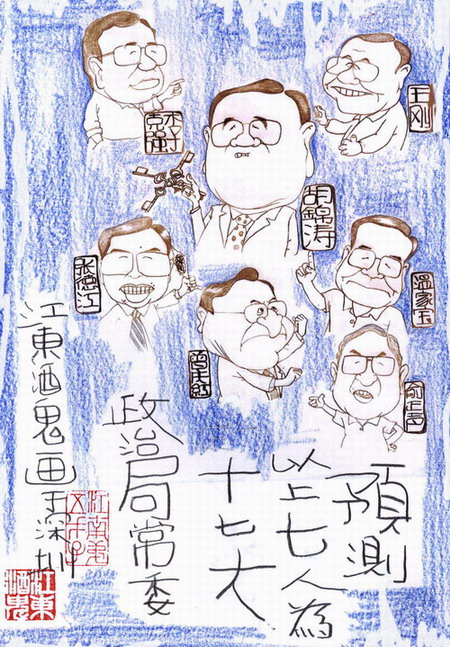 李克强
王刚
胡錦涛
张德江
溫家宝
曾庆红
俞正声
預測
以上七人為
十七大
政治局常委
江東酒鬼画于深圳
江東酒鬼